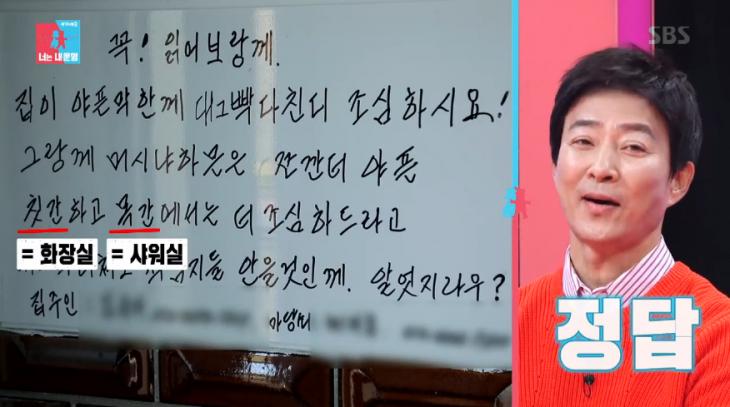 너는 내 운명
SBS
꼭! 읽어보랑께.
집이 야픈악한께 대그빡다친디 조심하시요!
그랑께 머시냐하믄은 잔간더 야픈
칫간하고 목간에서는 더 조심하드라고
= 화장실 = 샤워실
안을것인께. 알엇지라우?
집주인 :
정답